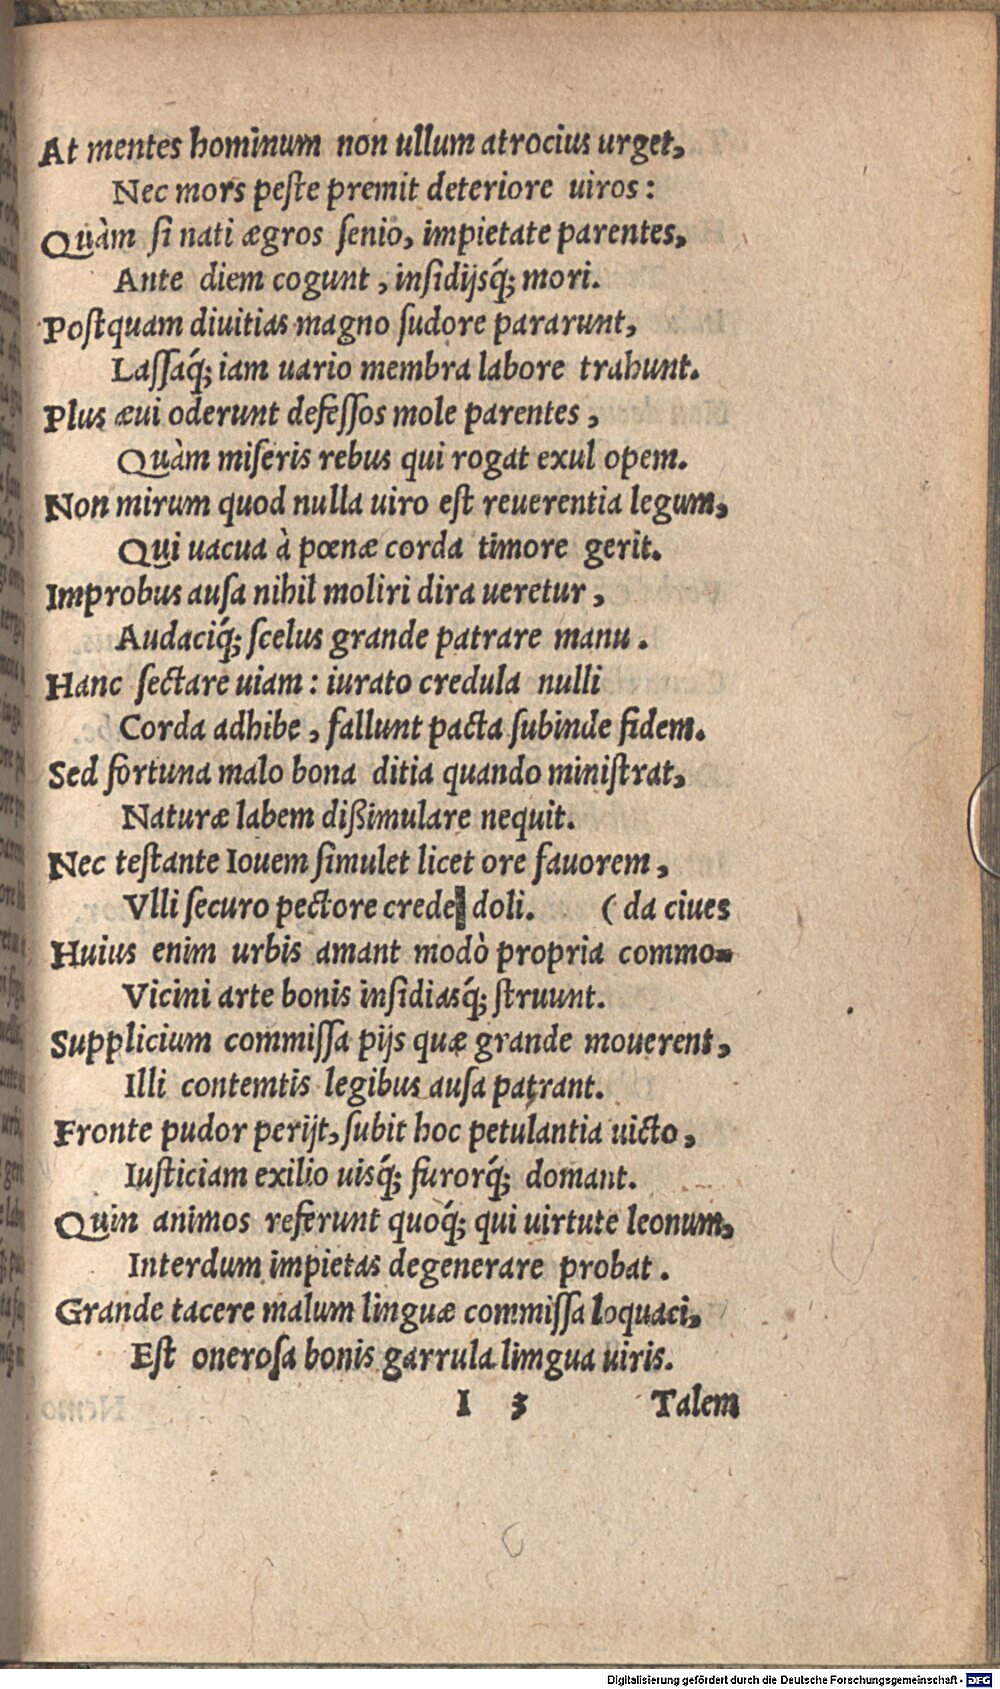 At mentes hominum non ullum atrocius urget,
Nec mors peſte premit deteriore uiros:
Quàm ſi nati ægros ſenio, impietate parentes,
Ante diem cogunt, inſidijsq́; mori.
Poſtquam diuitias magno ſudore pararunt,
Laſſaq́; iam uario membra labore trahunt.
Plus æui oderunt defeſſos mole parentes,
Quàm miſeris rebus qui rogat exul opem.
Non mirum quod nulla uiro eſt reuerentia legum,
Qui uacua à pœnæ corda timore gerit.
Improbus auſa nihil moliri dira ueretur,
Audaciq́; ſcelus grande patrare manu.
Hanc ſectare uiam: iurato credula nulli
Corda adhibe, fallunt pacta ſubinde fidem.
Sed fortuna malo bona ditia quando miniſtrat,
Naturæ labem dißimulare nequit.
Nec teſtante Iouem ſimulet licet ore fauorem,
Vlli ſecuro pectore crede doli. (da ciues
Huius enim urbis amant modò propria commo-
Vicini arte bonis inſidiasq́; ſtruunt.
Supplicium commiſſa pijs quæ grande mouerent,
Illi contemtis legibus auſa patrant.
Fronte pudor perijt, ſubit hoc petulantia uicto,
Iuſticiam exilio uisq́; furorq́; domant.
Quin animos referunt quoq́; qui uirtute leonum,
Interdum impietas degenerare probat.
Grande tacere malum linguæ commiſſa loquaci,
Eſt oneroſa bonis garrula limgua uiris.
I 3 Talem
Digitalisierung gefördert durch die Deutsche Forschungsgemeinschaft - DFG